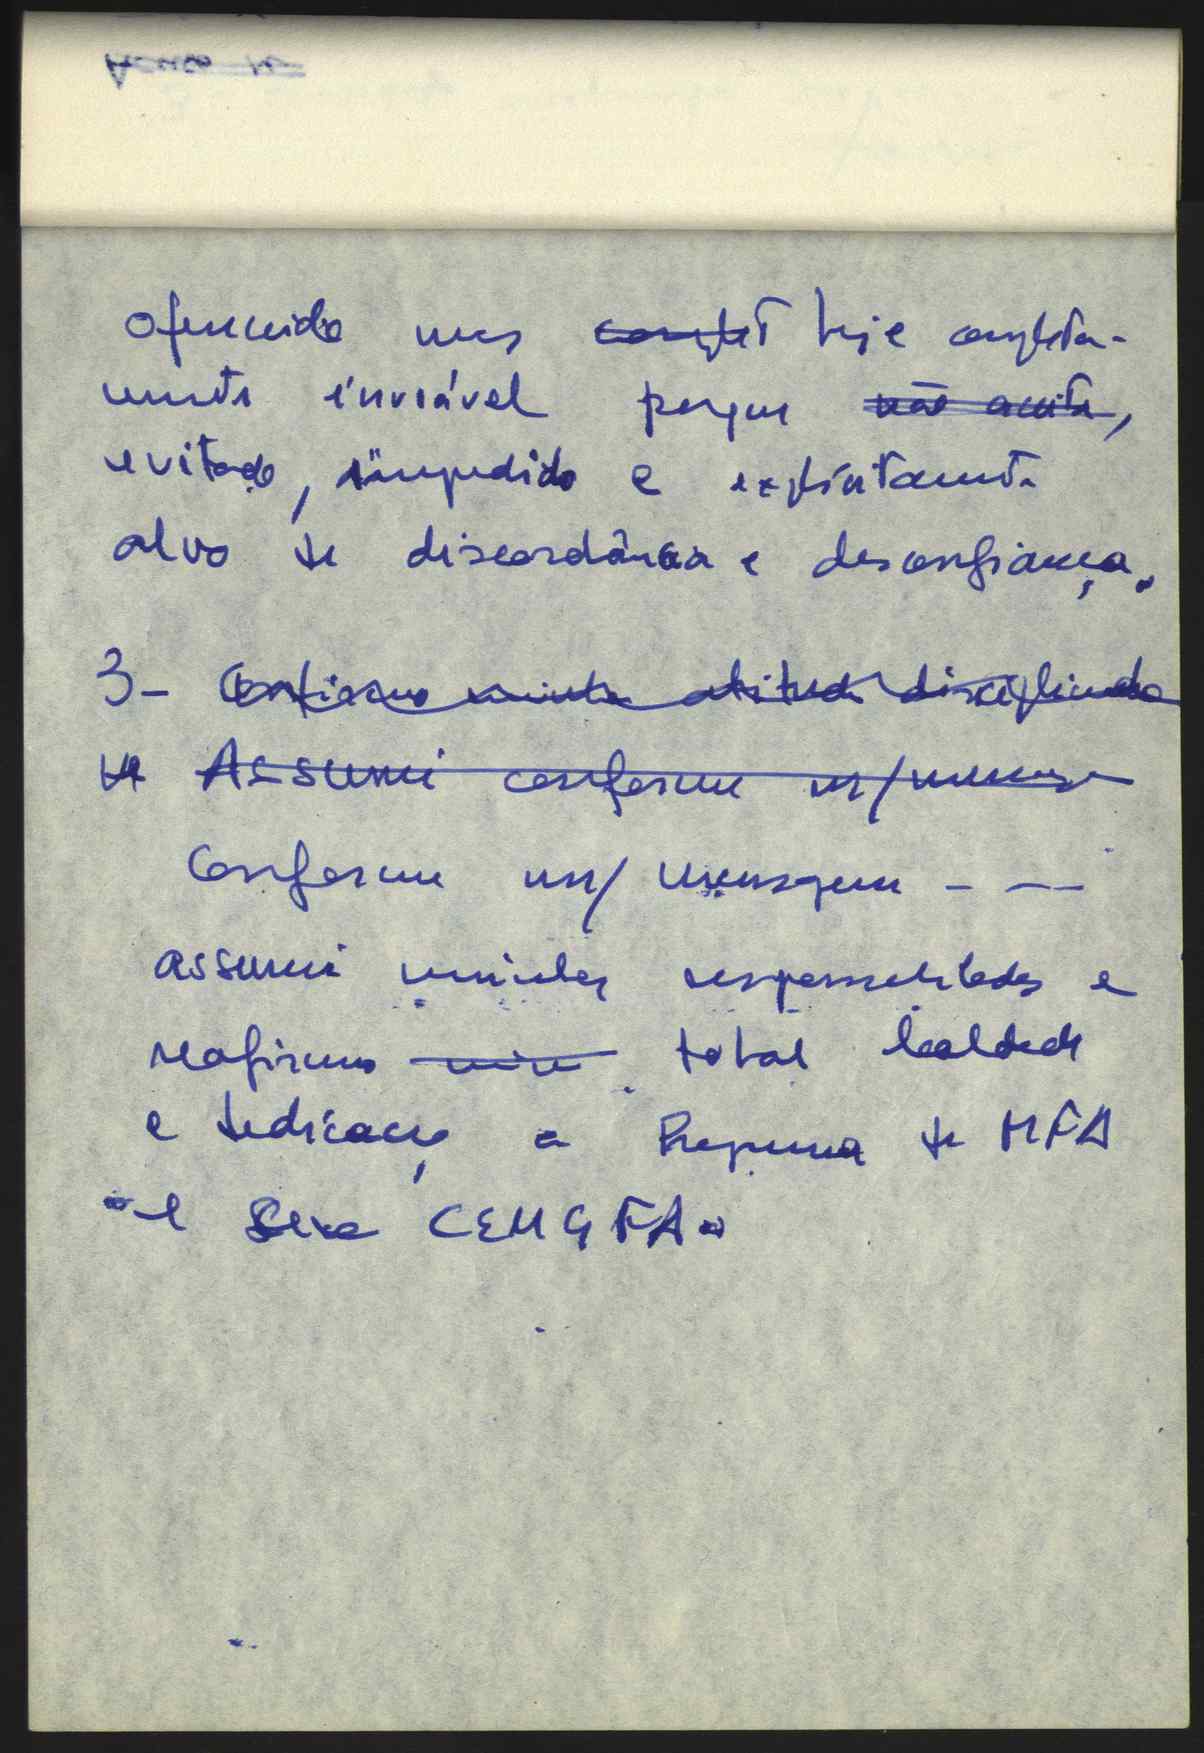 oferecido mas complet hoje completa-
mente inviável porque não aceite,
evitado, impedido e explicitamente
alvo de discordância e desconfiança.
3- Confirmo minha atitude disciplinada
Assumi conforme m/ mensage
Conforme m/ mensagem - --
assumi minhas responsabilidades e
reafirmo total lealdade
e dedicação a Programa do MFA
e CEMGFA.